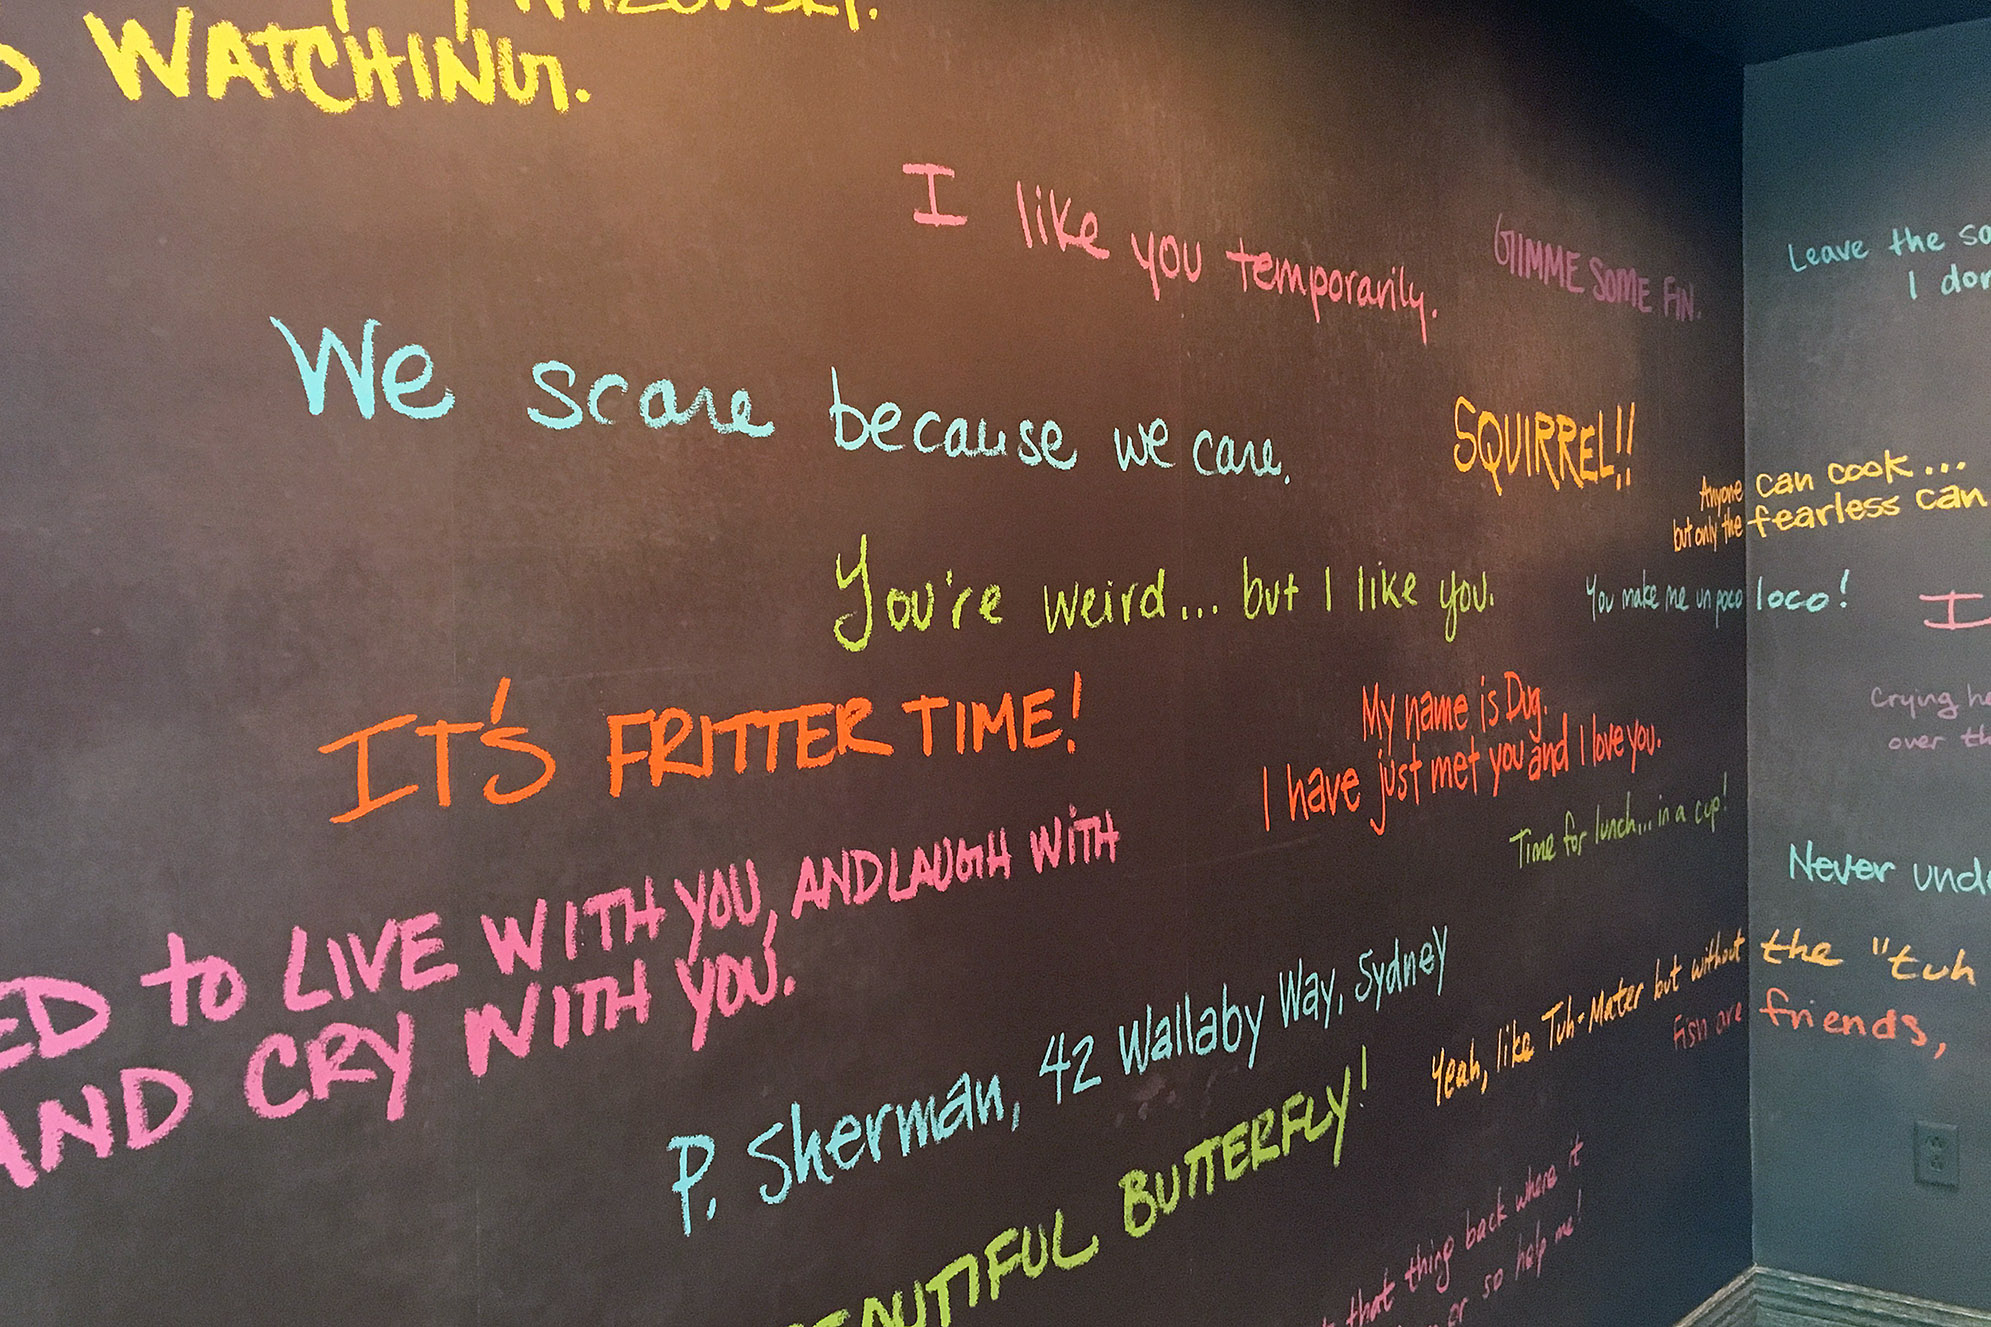 WAZOWSKI.
WATCHING.
I like you temporarily.
GIMME SOME FIN.
Leave the
I
We scare because we care.
SQUIRREL!!
Anyone can cook...
but only the fearless can
You're weird... but I like you.
You make me un poco loco!
I
IT'S FRITTER TIME!
My name is Dug.
I have just met you and I love you.
Crying
over
Time for lunch... in a cup!
Never
TO LIVE WITH YOU, AND LAUGH WITH
AND CRY WITH YOU.
P. Sherman, 42 Wallaby Way, Sydney
Yeah, like Tuh-Mater but without the "tuh
Fish are friends,
BUTTERFLY!
that thing back where it
or so help me!